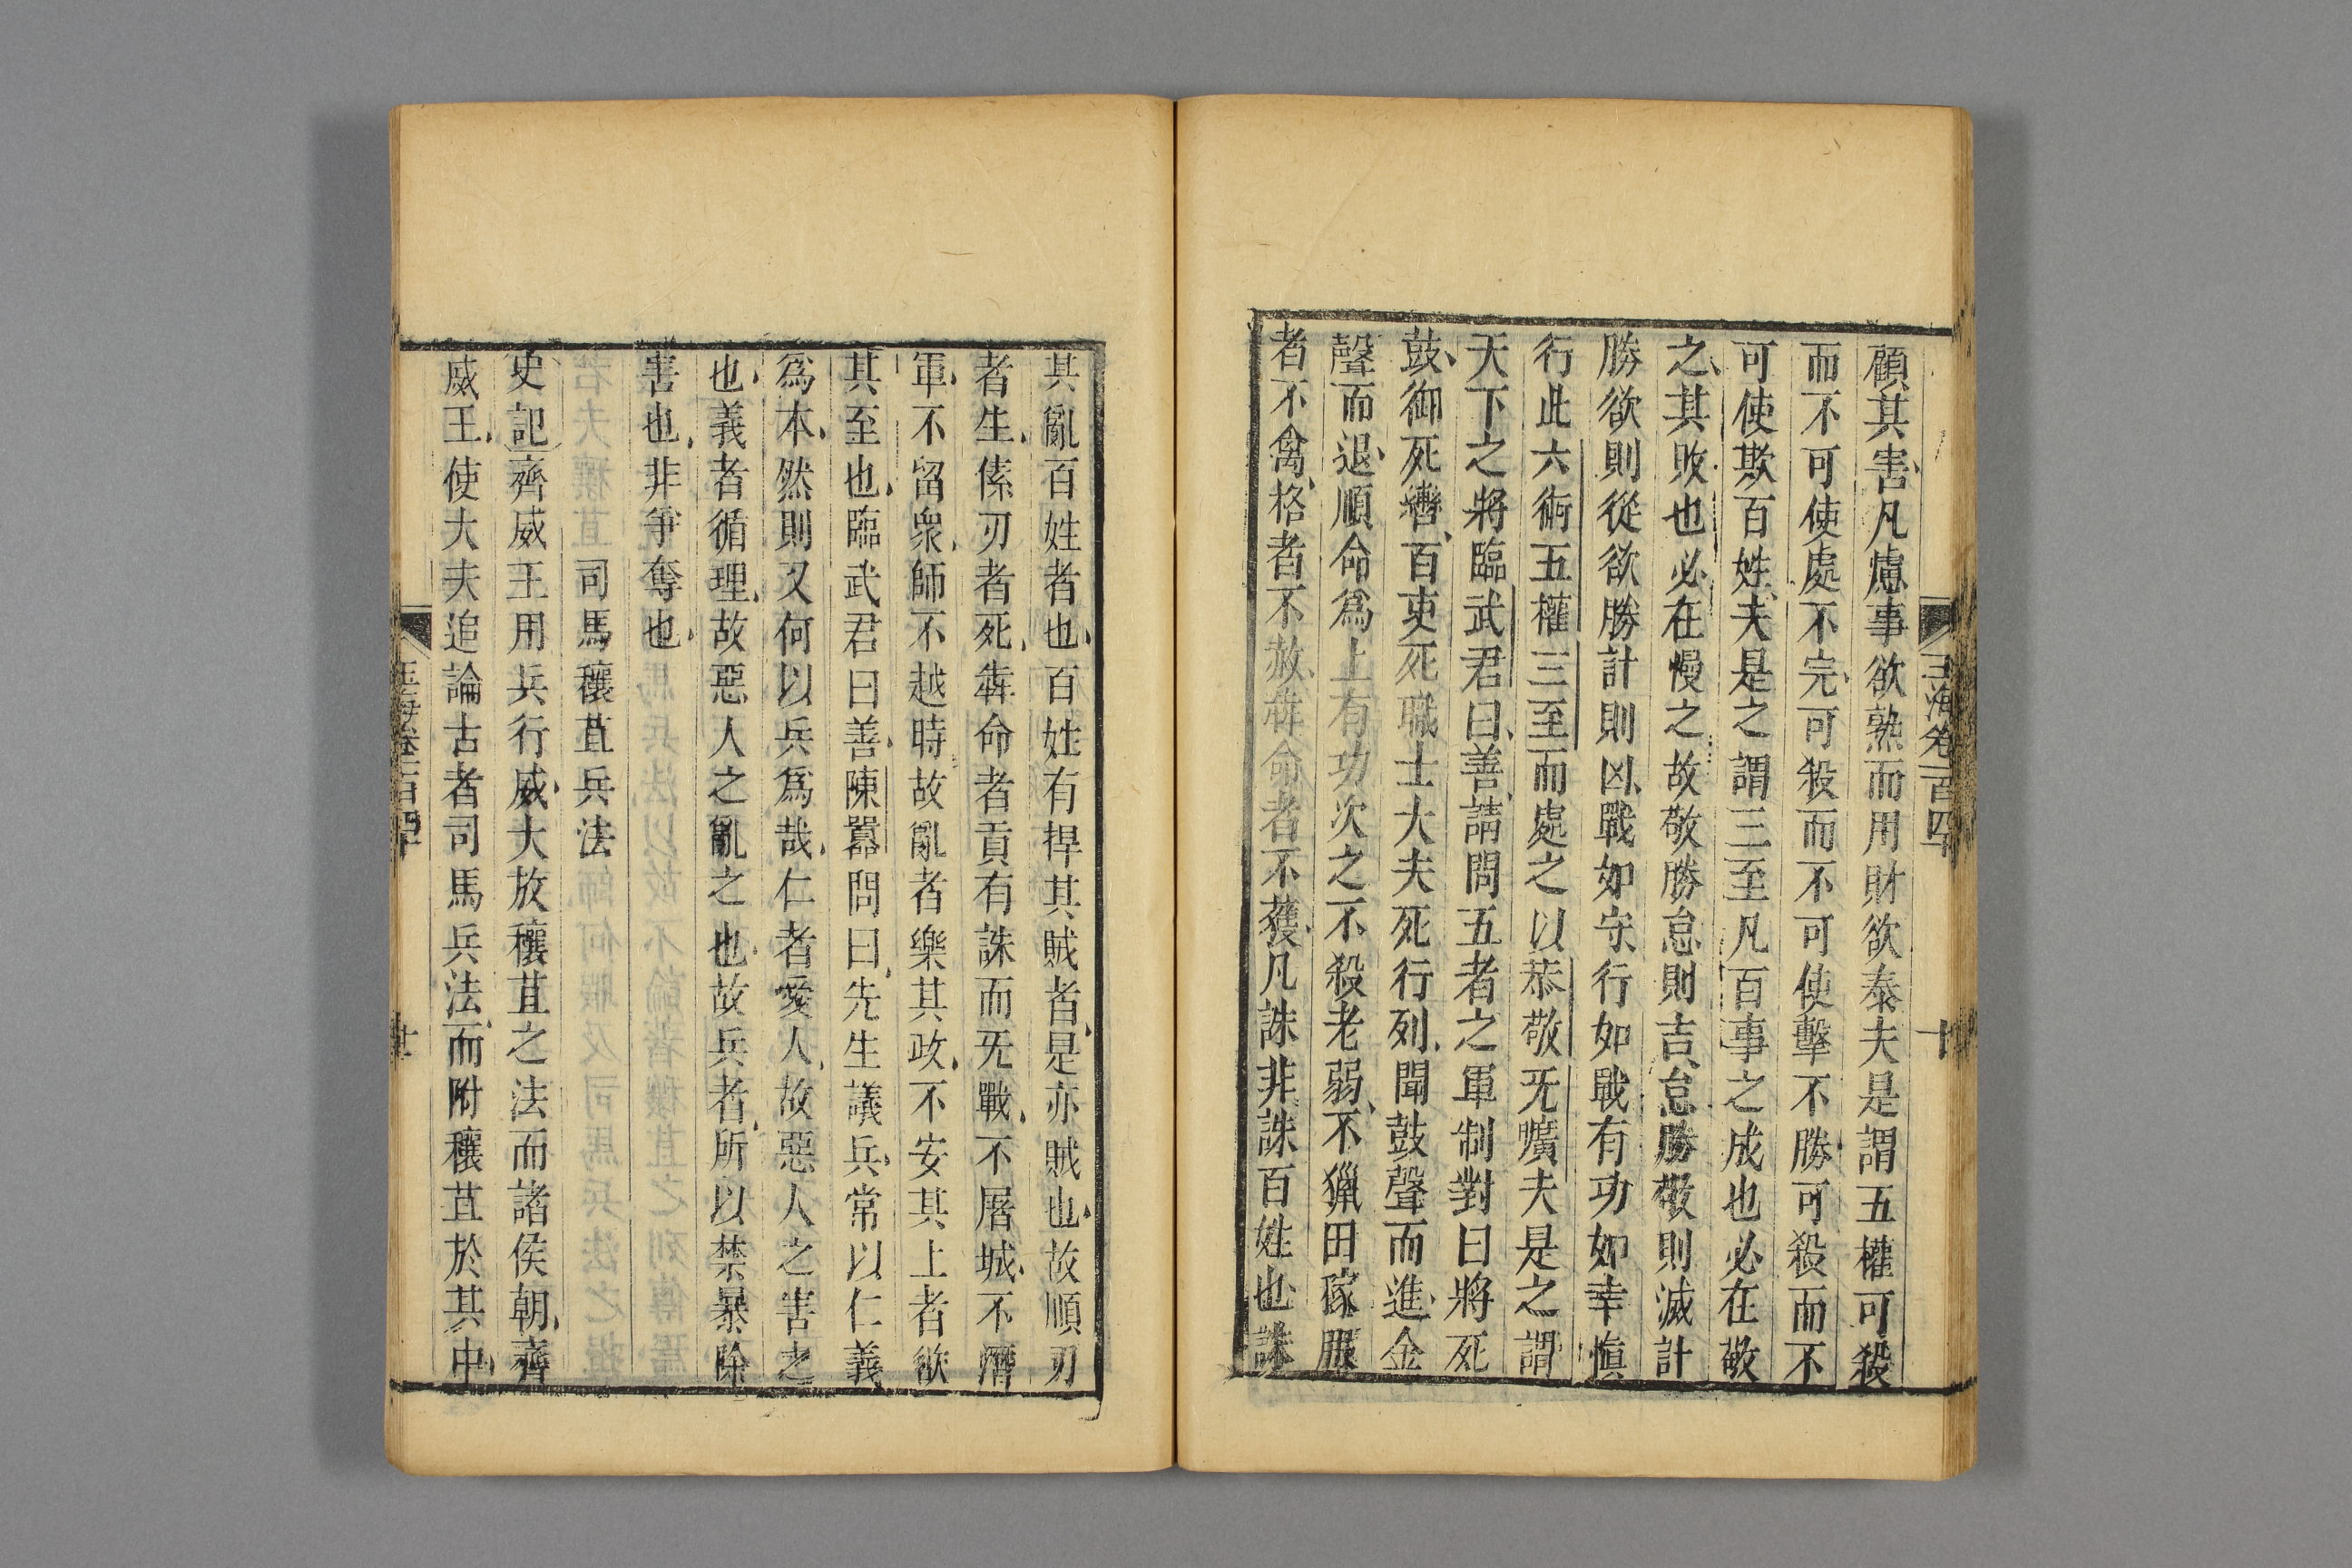 顧其害凡慮事欲熟而用財欲泰夫是謂五權可殺
而不可使處不完可殺而不可使擊不勝可殺而不
可使欺百姓夫是之謂三至凡百事之成也必在敬
之其敗也必在慢之故敬勝怠則吉怠勝敬則滅計
勝欲則從欲勝計則凶戰如守行如戰有功如幸愼
行此六術五權三至而處之以恭敬旡壙夫是之謂
天下之將臨武君曰善請問五者之軍制對曰將死
鼓御死轡百吏死職士大夫死行列聞鼓聲而進金
聲而退順命爲上有功次之不殺老弱不獵田稼服
者不禽格者不赦犇命者不獲凡誅非誅百姓也誅
其亂百姓者也百姓有捍其賊者是亦賊也故順刃
者生傃刃者死犇命者貢有誅而旡戰不屠城不潛
軍不留衆師不越時故亂者樂其政不安其上者欲
其至也臨武君曰善陳嚣問曰先生議兵常以仁義
爲本然則又何以兵爲哉仁者愛人故惡人之害之
也義者循理故惡人之亂之也故兵者所以禁暴除
害也非爭奪也
司馬穰苴兵法
史記齊威王用兵行威大放穰苴之法而諸侯朝齊
威王使大夫追論古者司馬兵法而附穰苴於其中
玉海卷一百四十